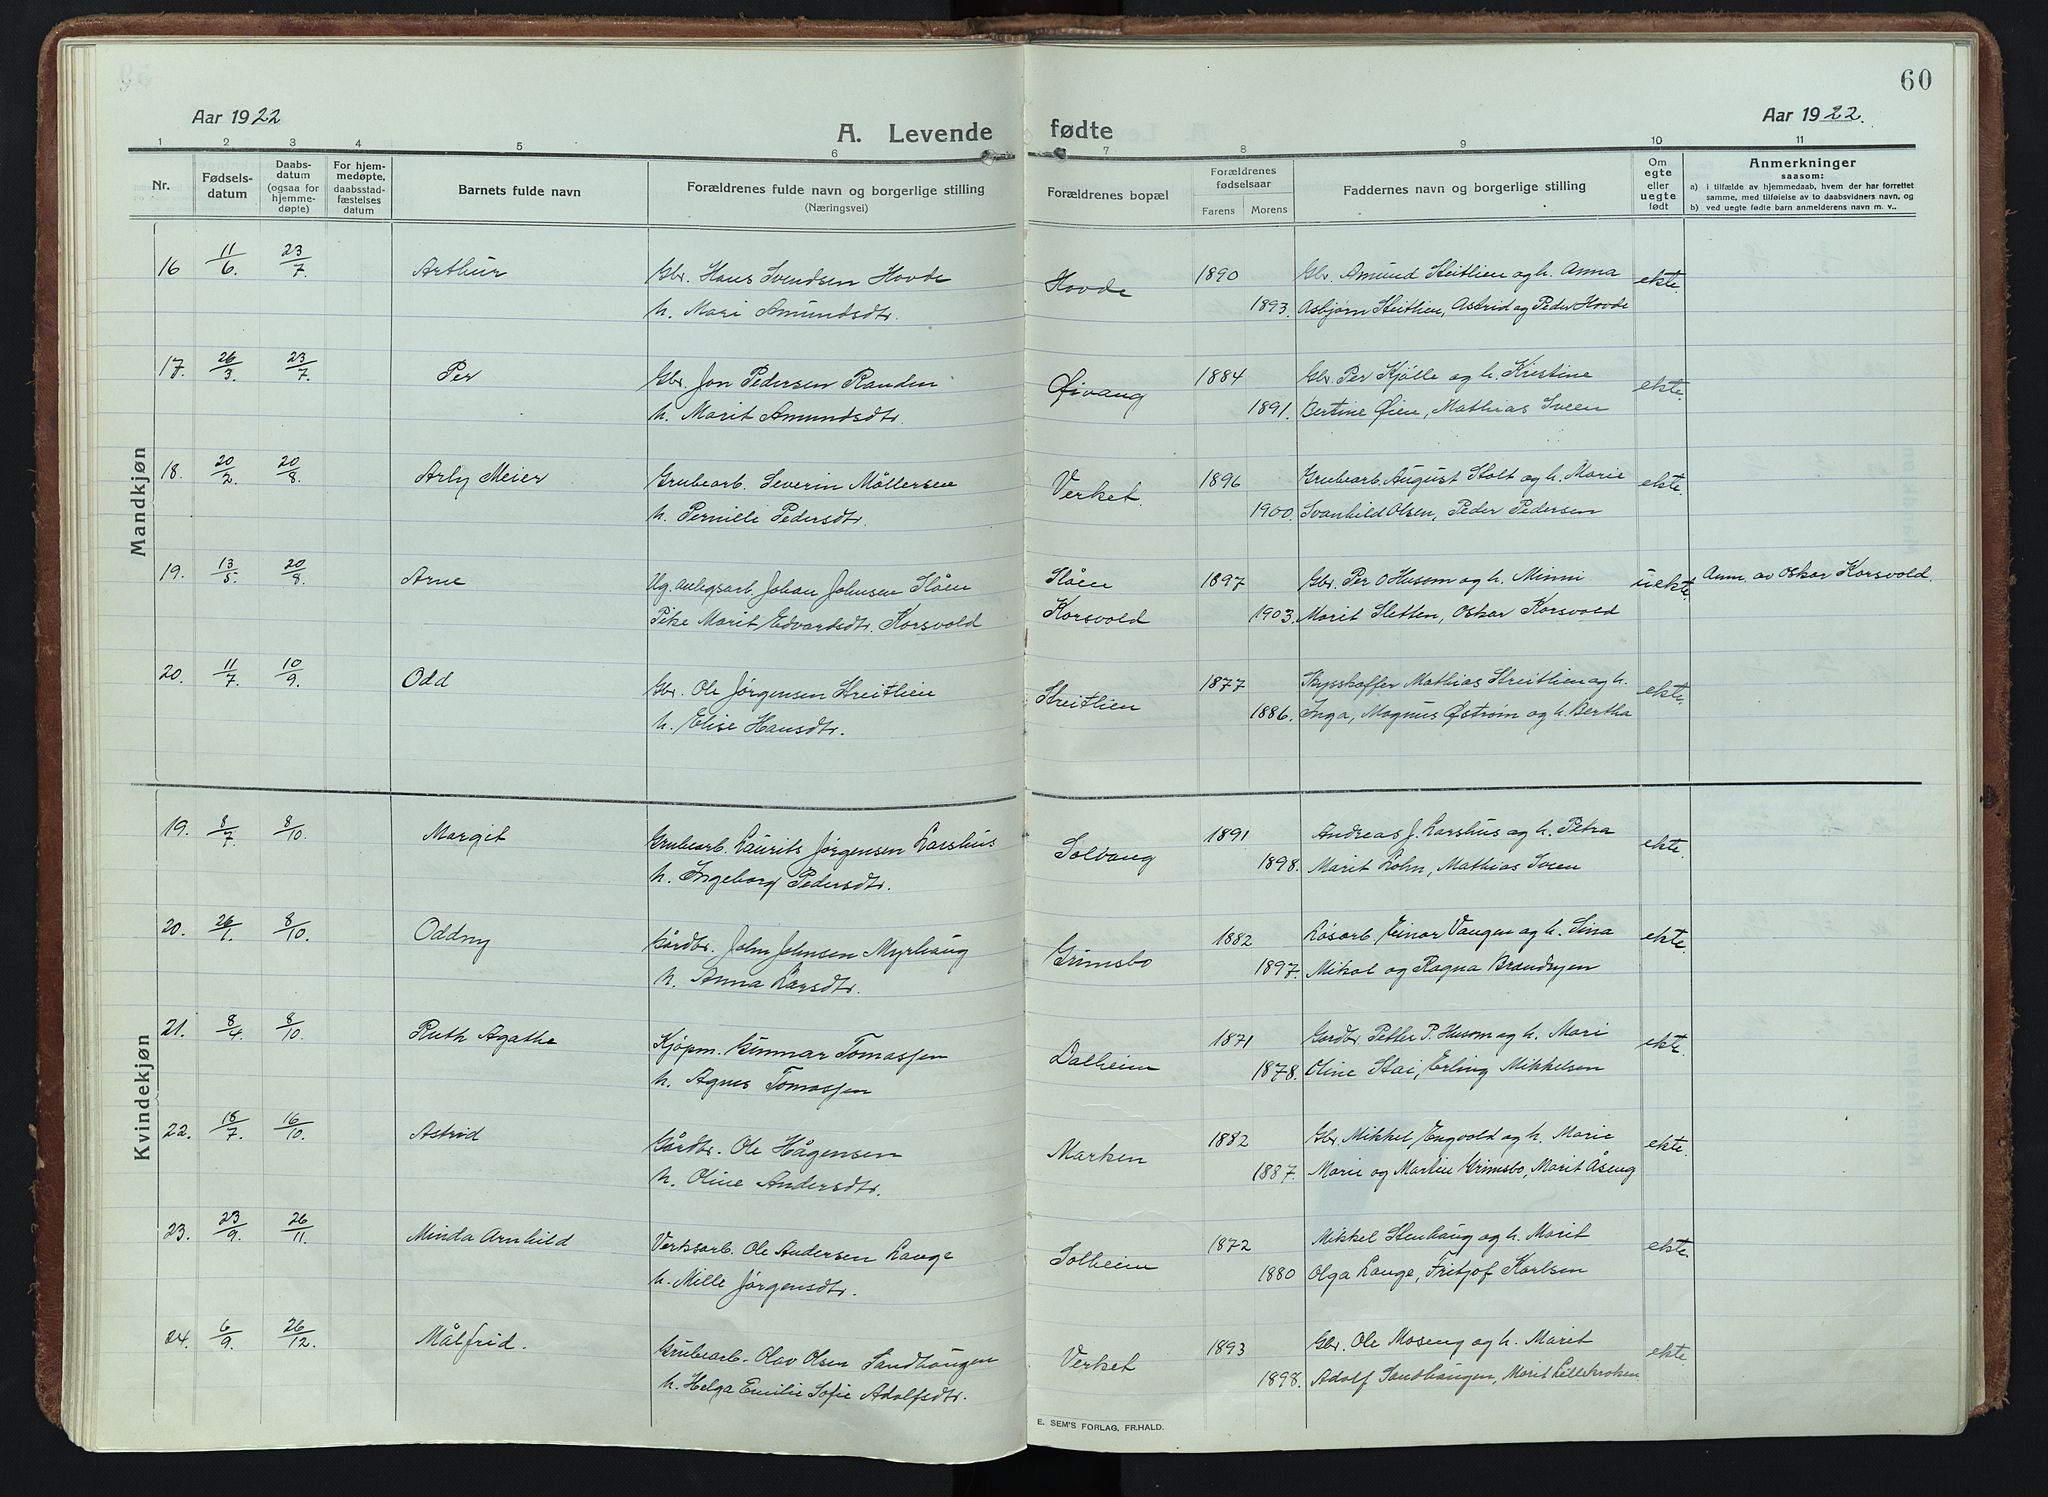 60
Aar 1922
Aar 1922.
A. Levende fødte
1 2 3 4 5 6 7 8 9 10 11
Nr.
Fødsels-
datum
Daabs-
datum
(ogsaa for
hjemme-
døpte)
For hjem-
medøpte,
daabsstad-
fæstelses
datum
Barnets fulde navn
Forældrenes fulde navn og borgerlige stilling
(Næringsvei)
Forældrenes bopæl
Forældrenes
fødselsaar
Farens Morens
Faddernes navn og borgerlige stilling
Om
egte
eller
uegte
født
Anmerkninger
saasom:
a) i tilfælde av hjemmedaab, hvem der har forrettet
samme, med tilføielse av to daabsvidners navn, og
b) ved uegte fødte barn anmelderens navn m. v..
Mandkjøn
16 11/6. 23/7. Arthur Gbr. Hans Svendsen Hovde Hovde 1890 Gbr. Amund Streitlien og h. Anna ekte.
h. Mari Amundsdtr. 1893. Asbjørn Streitlien, Astrid og Peder Hovde
17. 26/3. 23/7. Per Gbr. Jon Pedersen Randen Øivang 1884 Gbr. Per Kjølle og h. Kristine ekte.
h. Marit Amundsdtr. 1891. Bertine Øien, Mathias Sveen
18. 20/2. 20/8. Arly Meier Grubearb. Severin Møllersen Verket. 1896 Grubearb. August Stolt og h. Marie ekte.
h. Pernille Pedersdtr. 1900. Svanhild Olsen, Peder Pedersen
19. 13/5. 20/8. Arne Ug. anlegsarb. Johan Johnsen Slåen Slåen 1897 Gbr. Per O Husom og h. Minni uekte. Anm. av Oskar Korsvold.
Pike Marit Edvardsdtr. Korsvold Korsvold 1903. Marit Sletten, Oskar Korsvold
20. 11/7. 10/9. Odd Gbr. Ole Jørgensen Streitlien Streitlien 1877 Skysskaffer Mathias Streitlien og h. ekte.
h. Elise Hansdtr. 1886. Inga, Magnus Østrøm og h. Bertha
Kvindekjøn
19. 8/7 8/10. Margit Grubearb. Laurits Jørgensen Larshus Solvang 1891 Andreas J. Larshus og h. Petra ekte.
h. Ingeborg Pedersdtr. 1898. Marit Løhn, Mathias Sveen
20. 26/1. 8/10. Oddny Gårdbr. John Johnsen Myrhaug Grimsbo 1882 Løsarb. Einar Vangen og h. Sina ekte.
h. Anna Larsdtr. 1897. Mikal og Ragna Brendryen
21. 8/4 8/10. Ruth Agathe Kjøpm. Gunnar Tomassen Dalheim 1871 Gardbr. Petter P. Husom og h. Mari ekte.
h. Agnes Tomassen 1878. Oline Stai, Erling Mikkelsen
22. 18/7. 16/10. Astrid Gårdbr. Ole Hågensen Marken 1882 Gbr. Mikkel Engvold og h. Marie ekte.
h. Oline Andersdtr. 1887. Marie og Martin Grimsbo, Marit Åseng
23. 23/9. 26/11. Minda Arnhild Verksarb. Ole Andersen Lauge Solheim 1872 Mikkel Stenhaug og h. Marit ekte.
h. Mille Jørgensdtr. 1880 Olga Lauge, Fritjof Karlsen
24. 6/9. 26/12. Målfrid. Grubearb. Olav Olsen Sandhaugen Verket 1893 Gbr. Ole Moseng og h. Marit ekte.
h. Helga Emilie Sofie Adolfsdtr. 1898. Adolf Sandhaugen, Marit Lillekroken
E. SEM'S FORLAG, FR.HALD.